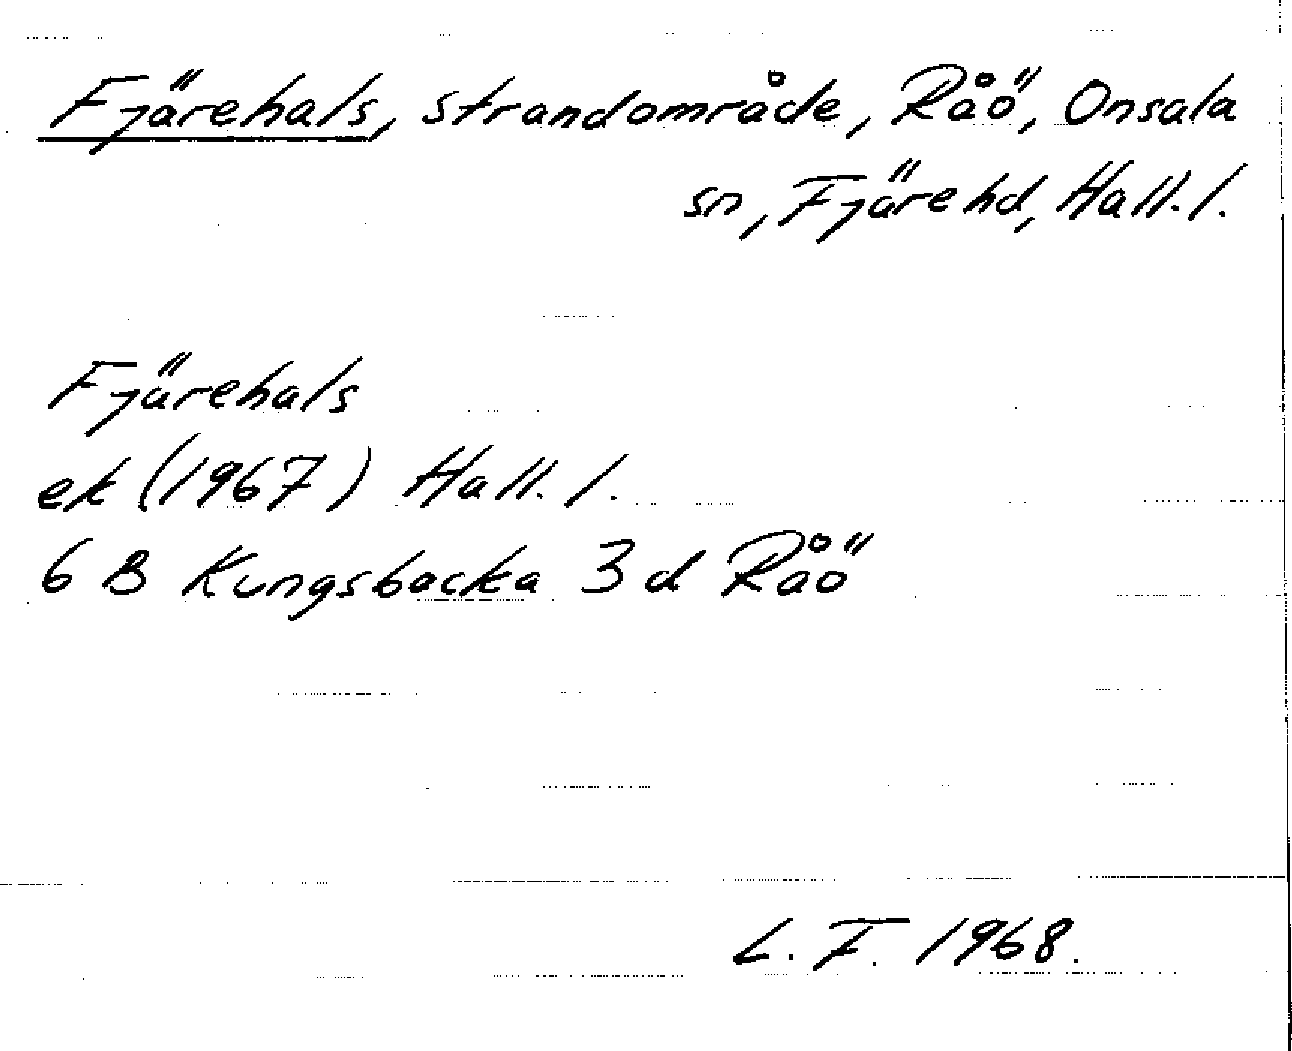 Fjärehals, strandområde, Råö, Onsala
sn, Fjäre hd, Hall. l.
Fjärehals
ek (1967) Hall. l.
6 B Kungsbacka 3 d Råö
L. F. 1968.